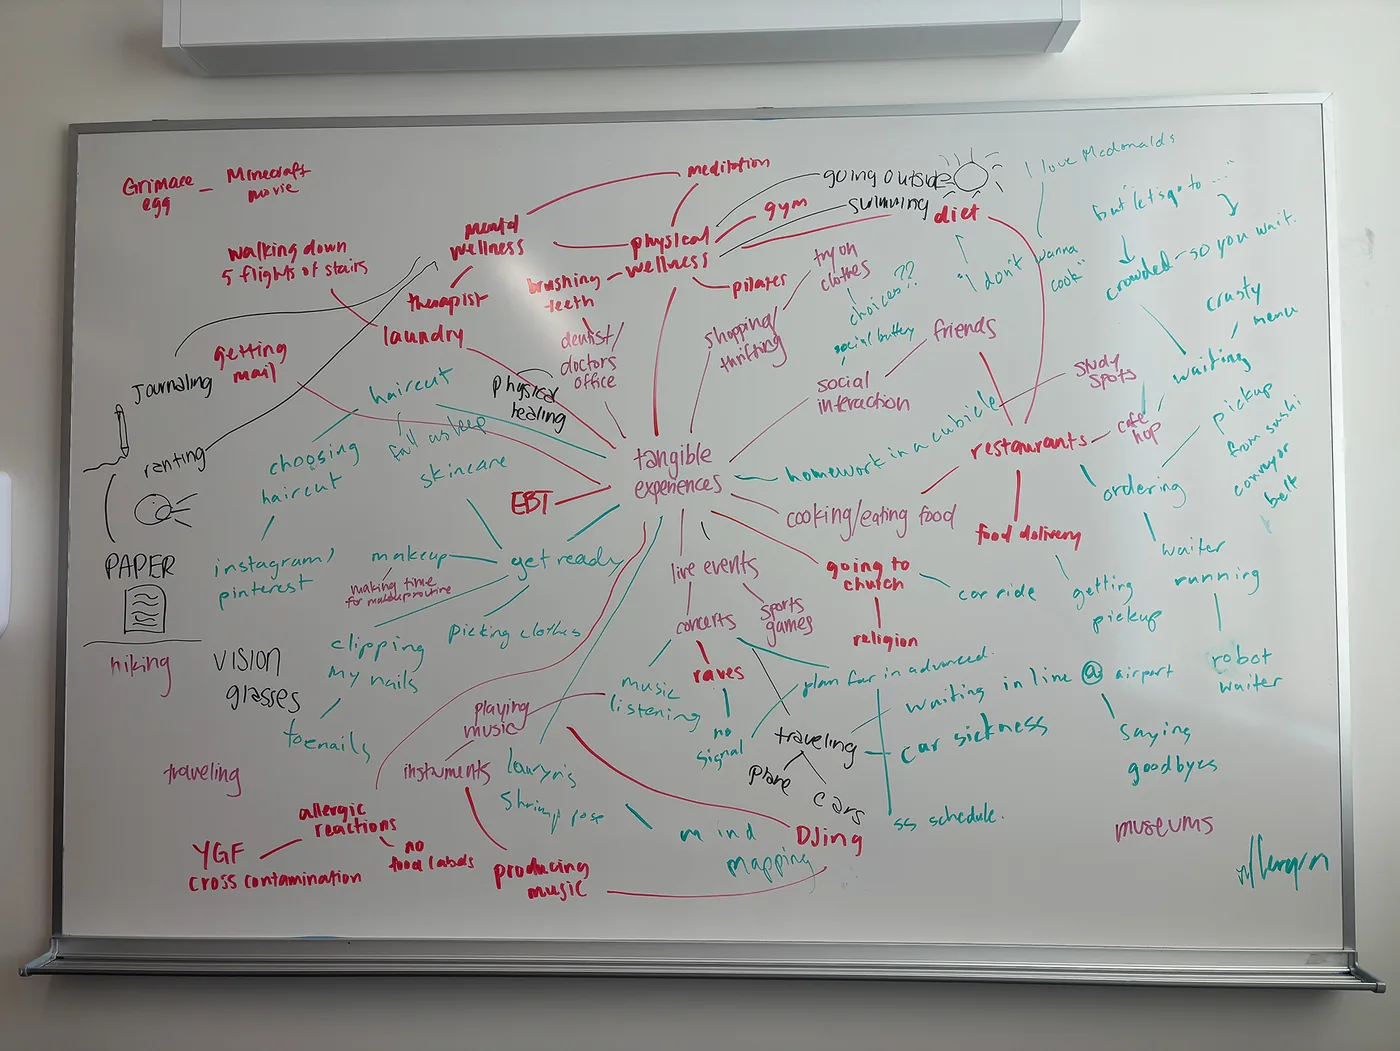 Grimace
egg
Minecraft
movie
walking down
5 flights of stairs
mental
wellness
meditation
physical
wellness
gym
going outside
swimming
diet
pilates
brushing
teeth
therapist
laundry
getting
mail
Journaling
ranting
PAPER
hiking
VISION
glasses
traveling
haircut
choosing
haircut
fall asleep
skincare
instagram/
pinterest
physical
healing
dentist/
doctors
office
shopping/
thrifting
try on
clothes
choices??
social battery
social
interaction
friends
"I don't wanna
cook"
I love Mcdonalds
but "let's go to ..."
crowded - so you wait.
crusty
menu
waiting
study
spots
cafe
hop
restaurants
pickup
from sushi
conveyor
belt
ordering
waiter
running
robot
waiter
food delivery
getting
pickup
tangible
experiences
homework in a cubicle
cooking/eating food
EBT
get ready
makeup
making time
for makeup routine
clipping
my nails
toenails
picking clothes
live events
concerts
sports
games
raves
no
signal
music
listening
going to
church
religion
car ride
plan far in advanced.
ss schedule.
traveling
plane
cars
waiting in line @ airport
car sickness
saying
goodbyes
playing
music
instruments
producing
music
DJing
lauryn's
shrimp pose
mind
mapping
allergic
reactions
no
food labels
YGF
cross contamination
museums